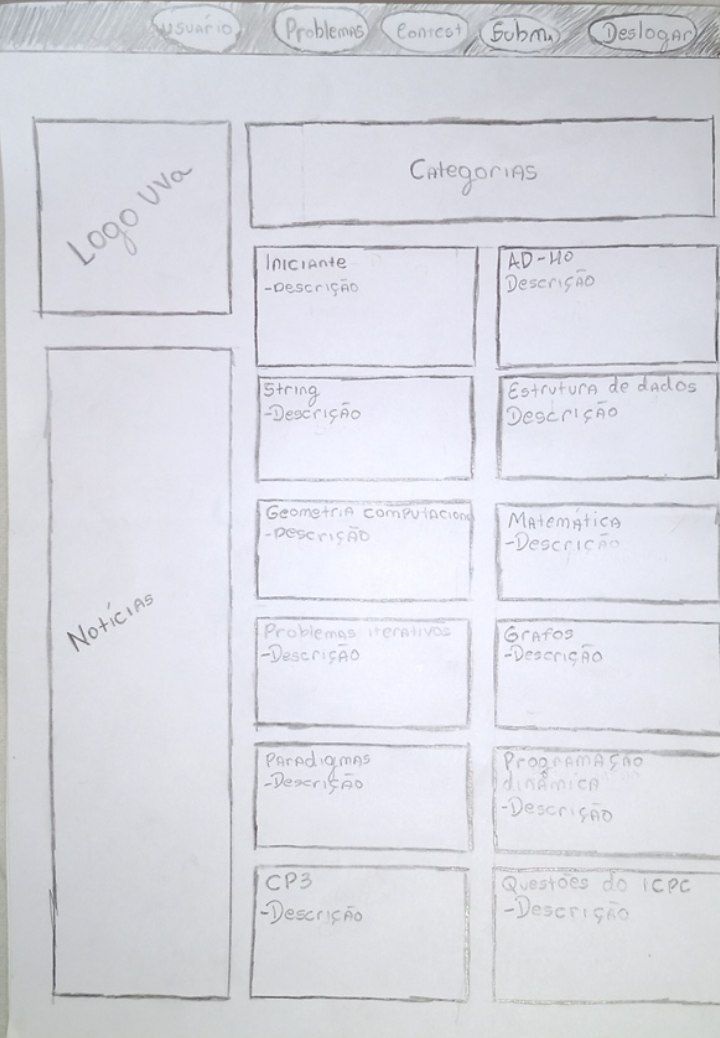 Usuário Problemas Contest Subm. Deslogar
Logo UVa
Categorias
Iniciante
-Descrição
AD-HO
Descrição
String
-Descrição
Estrutura de dados
Descrição
Geometria computacion
-Descrição
Matemática
-Descrição
Notícias
Problemas iterativos
-Descrição
Grafos
-Descrição
Paradigmas
-Descrição
Programação
dinâmica
-Descrição
CP3
-Descrição
Questões do ICPC
-Descrição